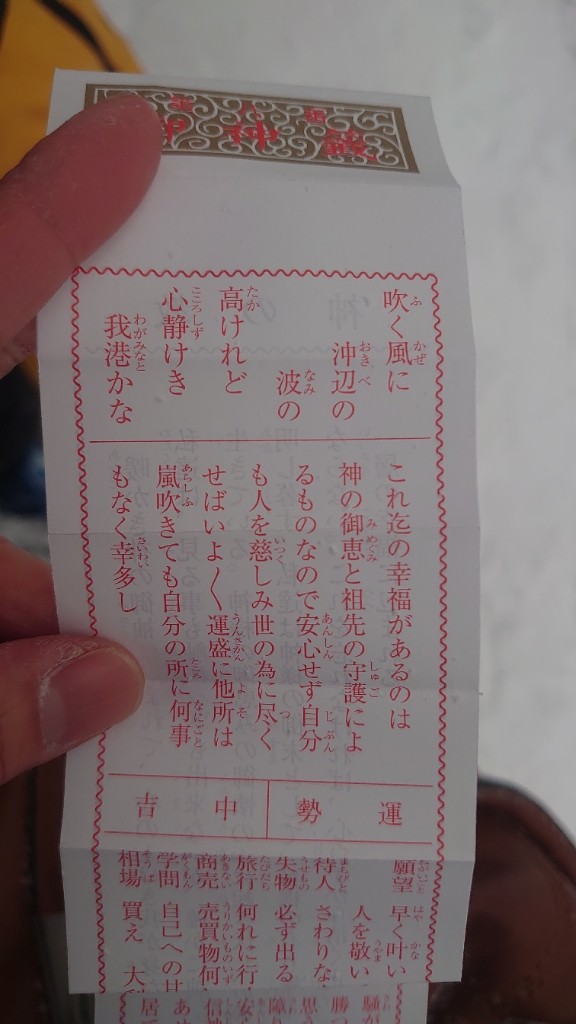 神
吹く風に
沖辺の
波の
高けれど
心静けき
我港かな
これ迄の幸福があるのは
神の御恵と祖先の守護によ
るものなので安心せず自分
も人を慈しみ世の為に尽く
せばいよ〱運盛に他所は
嵐吹きても自分の所に何事
もなく幸多し
運勢
中吉
願望 早く叶い
人を敬い
待人 さわりな
失物 必ず出る
旅行 何れに行
商売 売買物何
学問 自己への甘
相場 買え 大
騒が
勝つ
思う
障り
安心
信神
あめ
居て